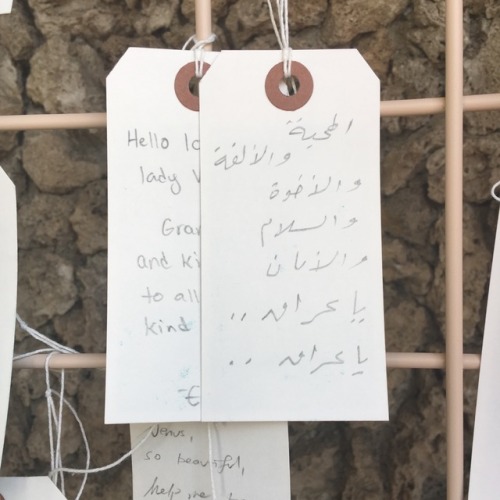 Hello
lady
Gra
and ki
to all
kind
المحبة
والألفة
والأخوة
والسلام
والأمان
يا عراق ..
يا عراق ..
Jesus,
so beautiful,
help me